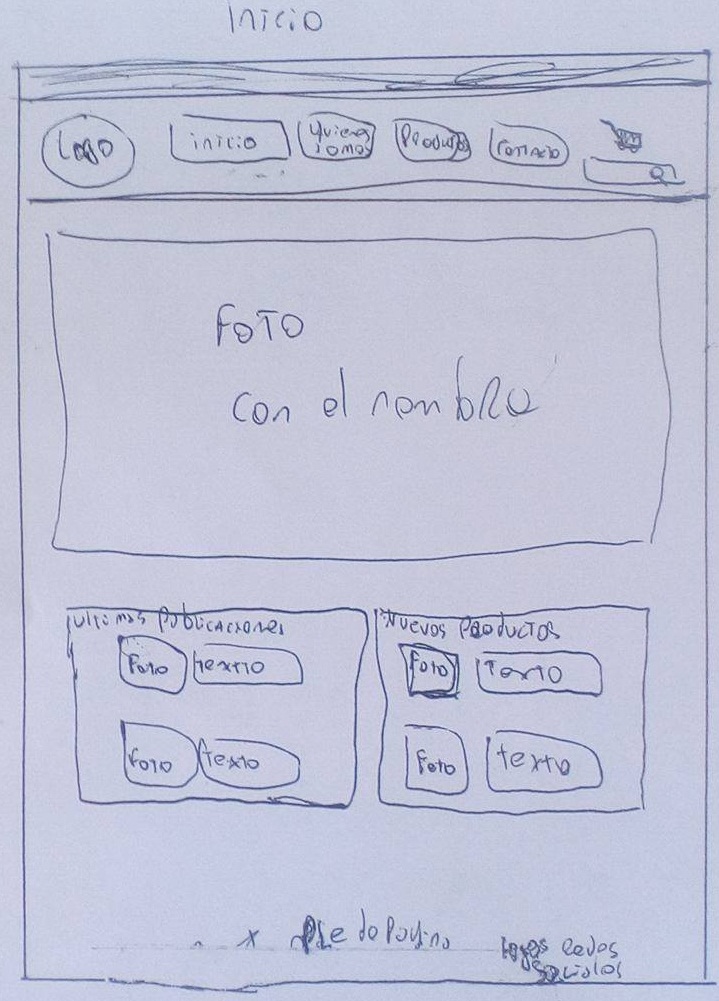 inicio
Logo
inicio
Quienes
somos
Productos
contacto
FOTO
con el nombre
ultimas Publicaciones
Foto
texto
Foto
texto
Nuevos PRODUCTOS
Foto
Texto
Foto
texto
x Pie de Pagina
logos redes
sociales